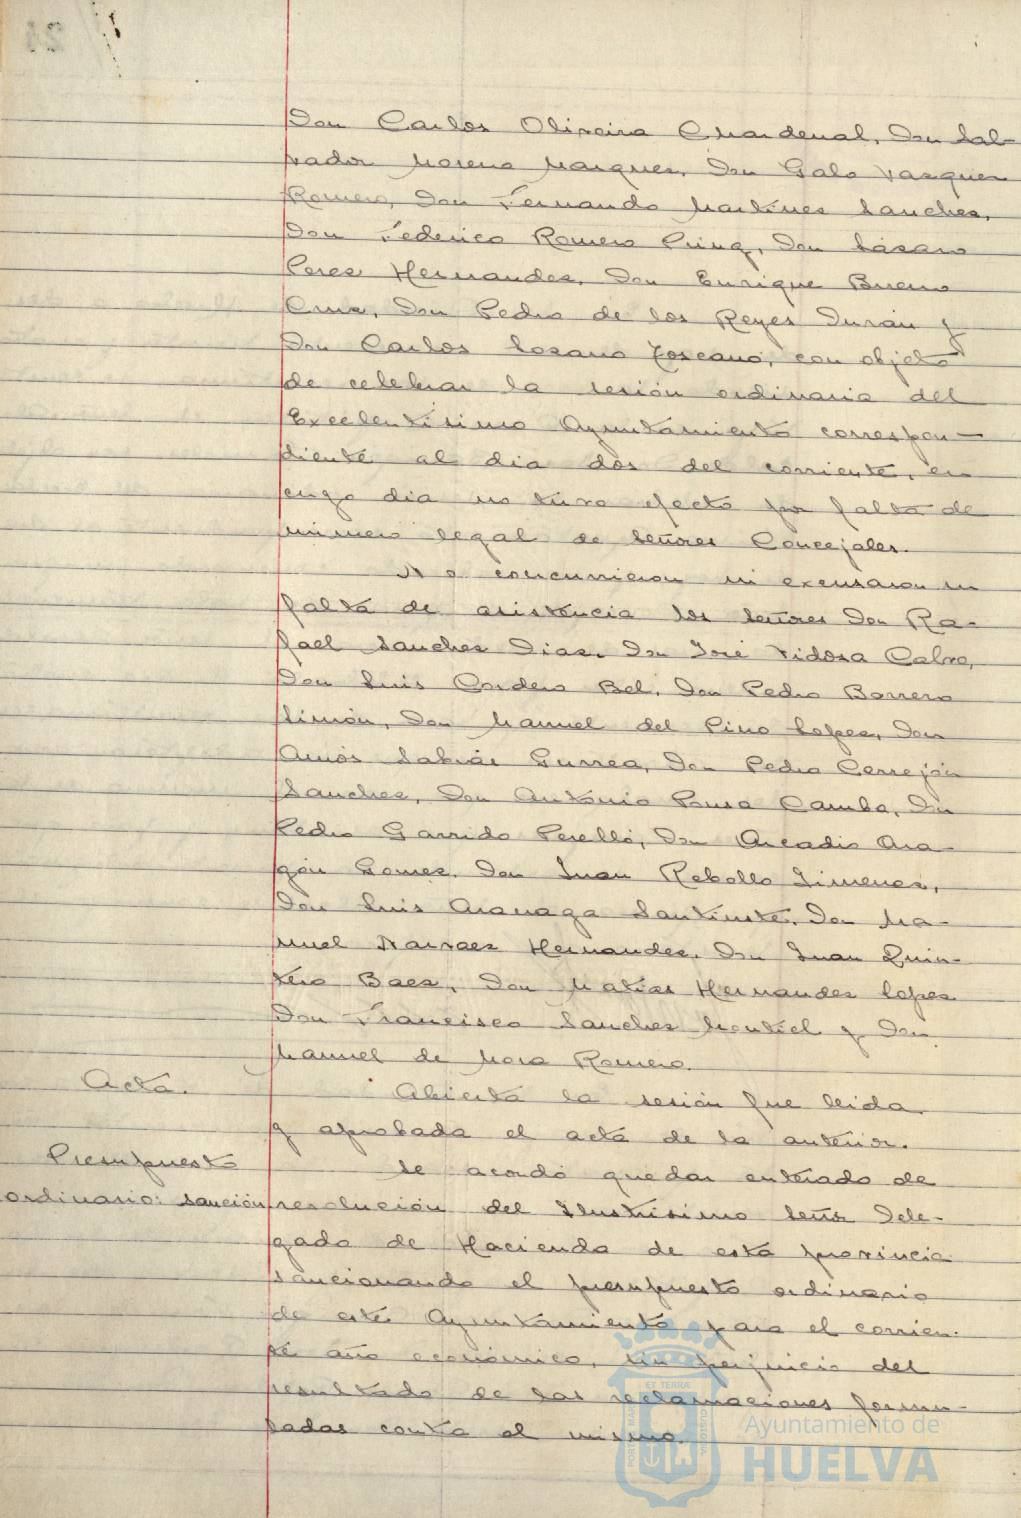 Don Carlos Oliveira Chardenal, Don Sal-
vador Moreno Marquez, Don Galo Vazquez
Romero, Don Fernando Martinez Sanchez,
Don Federico Romero Puig, Don Lázaro
Perez Hernandez, Don Enrique Bueno
Cruz, Don Pedro de los Reyes Durán y
Don Carlos Lozano Toscano, con objeto
de celebrar la sesión ordinaria del
Excelentísimo Ayuntamiento correspon-
diente al dia dos del corriente, en
cuyo dia no tuvo efecto por falta de
número legal de señores Concejales.
No concurrieron ni excusaron su
falta de asistencia los señores Don Ra-
fael Sanchez Diaz, Don José Vidosa Calvo,
Don Luis Cordero Bel, Don Pedro Borrero
Limón, Don Manuel del Pino Lopez, Don
Amós Sabrás Gurrea, Don Pedro Cerrejón
Sanchez, Don Antonio Pousa Camba, Don
Pedro Garrido Perelló, Don Arcadio Ara-
gón Gomez, Don Juan Rebollo Jimenez,
Don Luis Aranaga Santiuste, Don Ma-
nuel Narvaez Hernandez, Don Juan Quin-
tero Baez, Don Matías Hernandez Lopez
Don Francisco Sanchez Montiel y Don
Manuel de Mora Romero.
Acta.
Abierta la sesión fue leida
y aprobada el acta de la anterior.
Presupuesto
ordinario: sanción
Se acordó quedar enterado de
resolución del Ilustrísimo Señor Dele-
gado de Hacienda de esta provincia
sancionando el presupuesto ordinario
de este Ayuntamiento para el corrien-
te año económico, sin perjuicio del
resultado de las reclamaciones formu-
ladas contra el mismo.
Ayuntamiento de
HUELVA